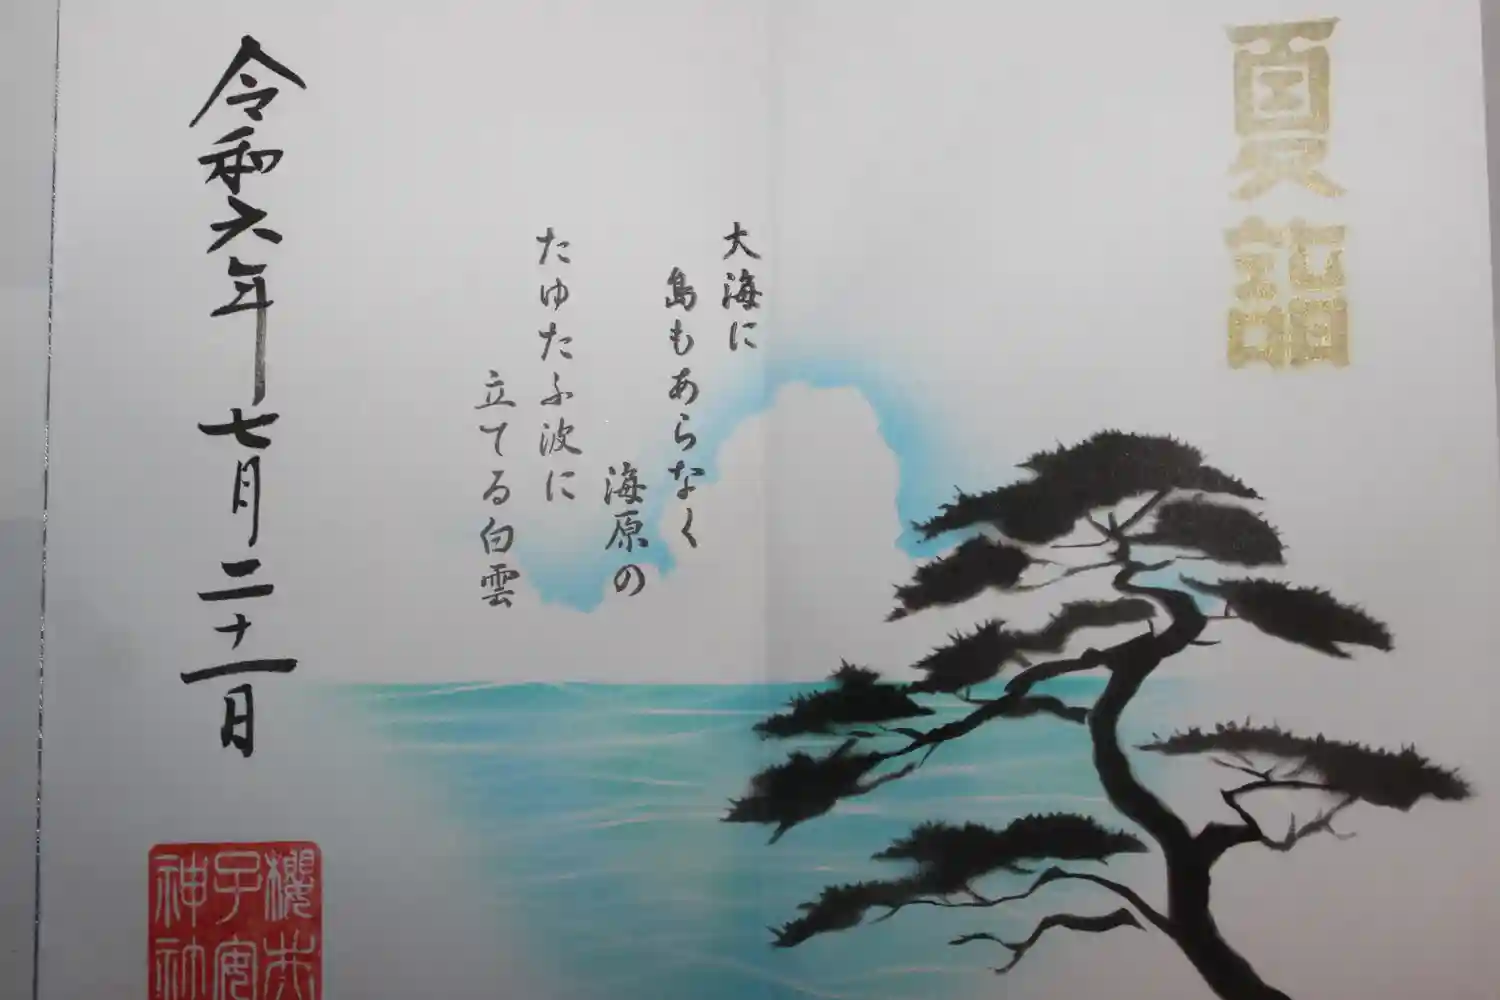 夏詣
大海に
島もあらなく
海原の
たゆたふ波に
立てる白雲
令和六年七月二十一日
櫻井
子安
神社